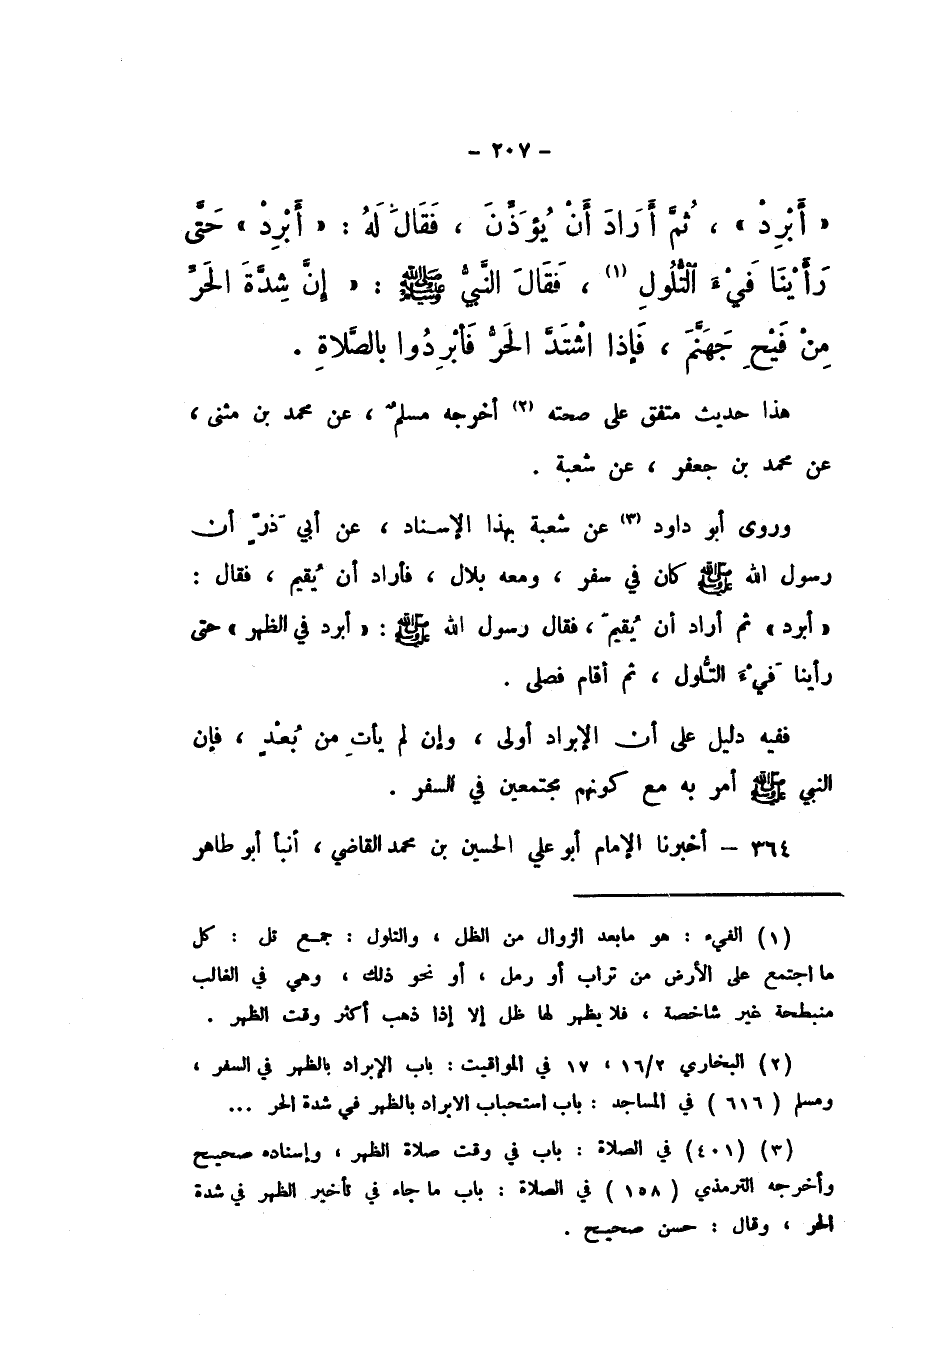 - ٢٠٧ -
« أَبْرِدْ » ، ثُمَّ أَرَادَ أَنْ يُؤَذِّنَ ، فَقَالَ لَهُ : « أَبْرِدْ » حَتَّى
رَأَيْنَا فَيْءَ التُّلُولِ (١) ، فَقَالَ النَّبِيُّ ﷺ : « إِنَّ شِدَّةَ الحَرِّ
مِنْ فَيْحِ جَهَنَّمَ ، فَإِذا اشْتَدَّ الحَرُّ فَأَبْرِدُوا بالصَّلاةِ .
هذا حديث متفق على صحته (٢) أخرجه مسلم ، عن محمد بن مثنى ،
عن محمد بن جعفر ، عن شعبة .
وروى أبو داود (٣) عن شعبة بهذا الإسناد ، عن أبي ذرّ أن
رسول الله ﷺ كان في سفر ، ومعه بلال ، فأراد أن يُقيم ، فقال :
« أبرد » ثم أراد أن يُقيمَ ، فقال رسول الله ﷺ : « أبرد في الظهر » حتى
رأينا فَيْءَ التُّلول ، ثم أقام فصلى .
ففيه دليل على أن الإبراد أولى ، وإن لم يأتِ من بُعْدٍ ، فإن
النبي ﷺ أمر به مع كونهم مجتمعين في السفر .
٣٦٤ – أخبرنا الإمام أبو علي الحسين بن محمد القاضي ، أنبأ أبو طاهر
(١) الفيء : هو مابعد الزوال من الظل ، والتلول : جمع تل : كل
ما اجتمع على الأرض من تراب أو رمل ، أو نحو ذلك ، وهي في الغالب
منبطحة غير شاخصة ، فلا يظهر لها ظل إلا إذا ذهب أكثر وقت الظهر .
(٢) البخاري ١٦/٢ ، ١٧ في المواقيت : باب الإبراد بالظهر في السفر ،
ومسلم ( ٦١٦ ) في المساجد : باب استحباب الابراد بالظهر في شدة الحر ...
(٣) (٤٠١) في الصلاة : باب في وقت صلاة الظهر ، وإسناده صحيح
وأخرجه الترمذي ( ١٥٨ ) في الصلاة : باب ما جاء في تأخير الظهر في شدة
الحر ، وقال : حسن صحيح .